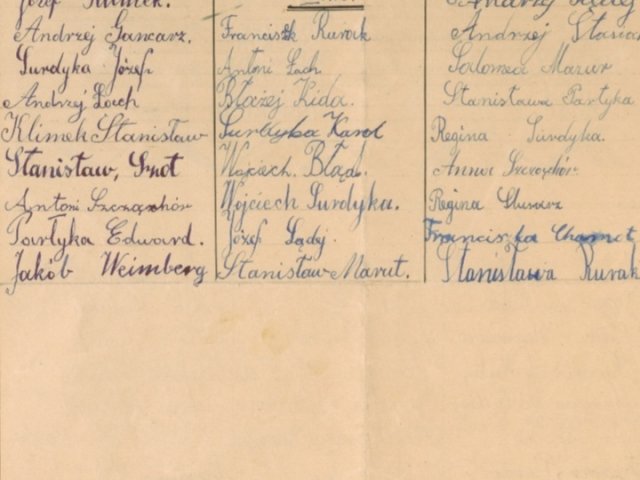 Józef Klimek.
Andrzej Gancarz.
Surdyka Józef
Andrzej Lach
Klimek Stanisław
Stanisław, Szot
Antoni Szczązhór
Partyka Edward.
Jakób Weimberg
Franciszk Kurak
Antoni Lach
Błażej Kida.
Surdyka Karol
Wojciech Błąd.
Wojciech Surdyka.
Józef Lądej.
Stanisław Marut.
Andrzej
Andrzej Stasiak
Salomea Mazur
Stanisława Partyka
Regina Surdyka.
Anna
Regina Ślusarz
Franciszka Chamot
Stanisława Kurak